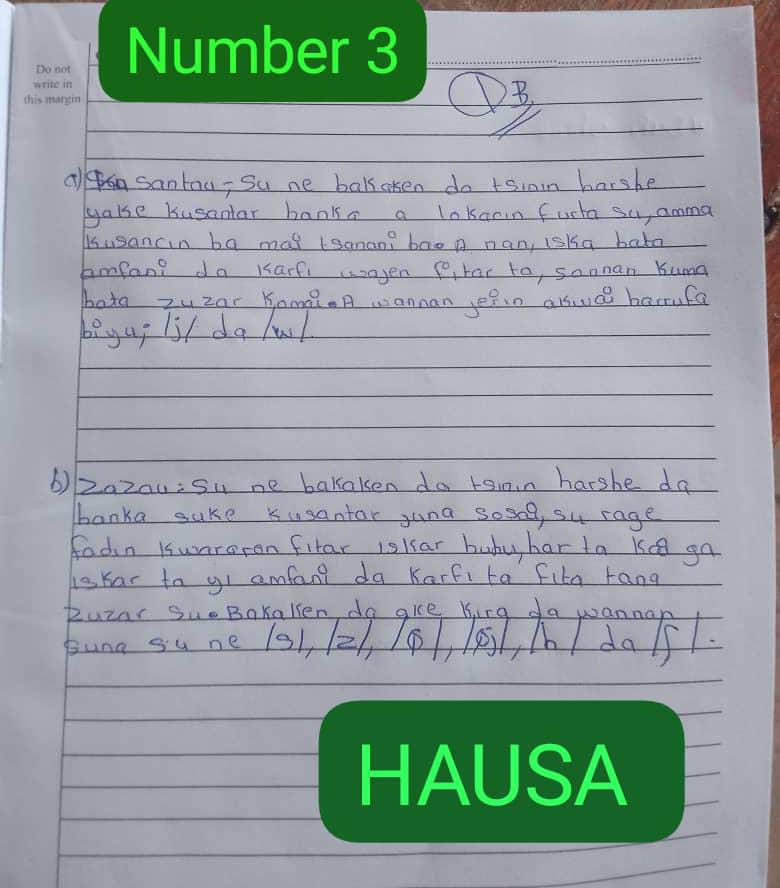 Number 3
Do not
write in
this margin
1 B.
a) Santau; Su ne bakaken da tsinin harshe
yake kusantar hanka a lokacin furta su, amma
kusancin ba mai tsanani bae. A nan, iska bata
amfani da karfi wajen fitar ta, sannan kuma
bata zuzar komai. A wannan jerin akwai harrufa
biyu; /j/ da /w/.
b) Zazau: Su ne bakaken da tsinin harshe da
hanka suke kusantar juna sosai, su rage
fadin kwararon fitar iskar huhu, har ta kai ga
iskar ta yi amfani da karfi ta fita tana
zuzar su. Bakaken da ake kira da wannan
suna su ne /s/, /z/, /ɸ/, /ɸj/, /h/ da /ʃ/.
HAUSA